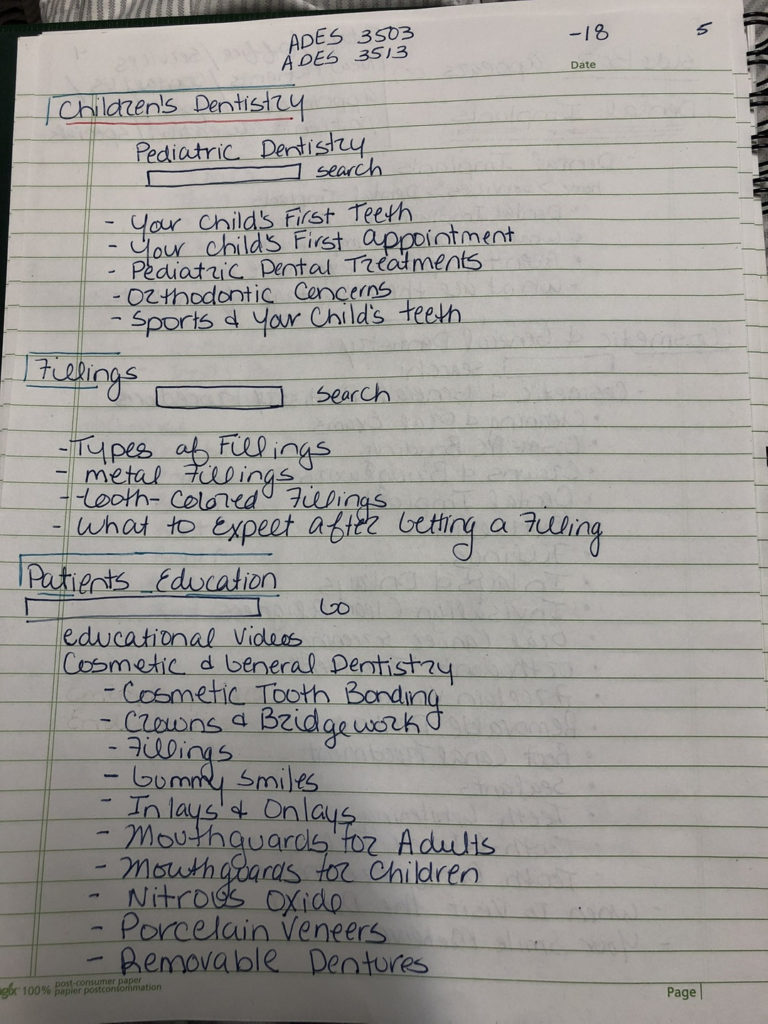 ADES 3503
ADES 3513
-18
5
Date
Children's Dentistry
Pediatric Dentistry
search
- Your Child's First Teeth
- Your child's First appointment
- Pediatric Dental Treatments
- Orthodontic Concerns
- Sports & Your Child's teeth
Fillings
search
- Types of Fillings
- metal Fillings
- tooth-Colored Fillings
- What to Expect after Getting a Filling
Patients Education
Go
educational Videos
Cosmetic & General Dentistry
- Cosmetic Tooth Bonding
- Crowns & Bridgework
- Fillings
- Gummy Smiles
- Inlays & Onlays
- Mouthguards for Adults
- Mouthguards for Children
- Nitrous Oxide
- Porcelain Veneers
- Removable Dentures
100% post-consumer paper
papier postconsommation
Page